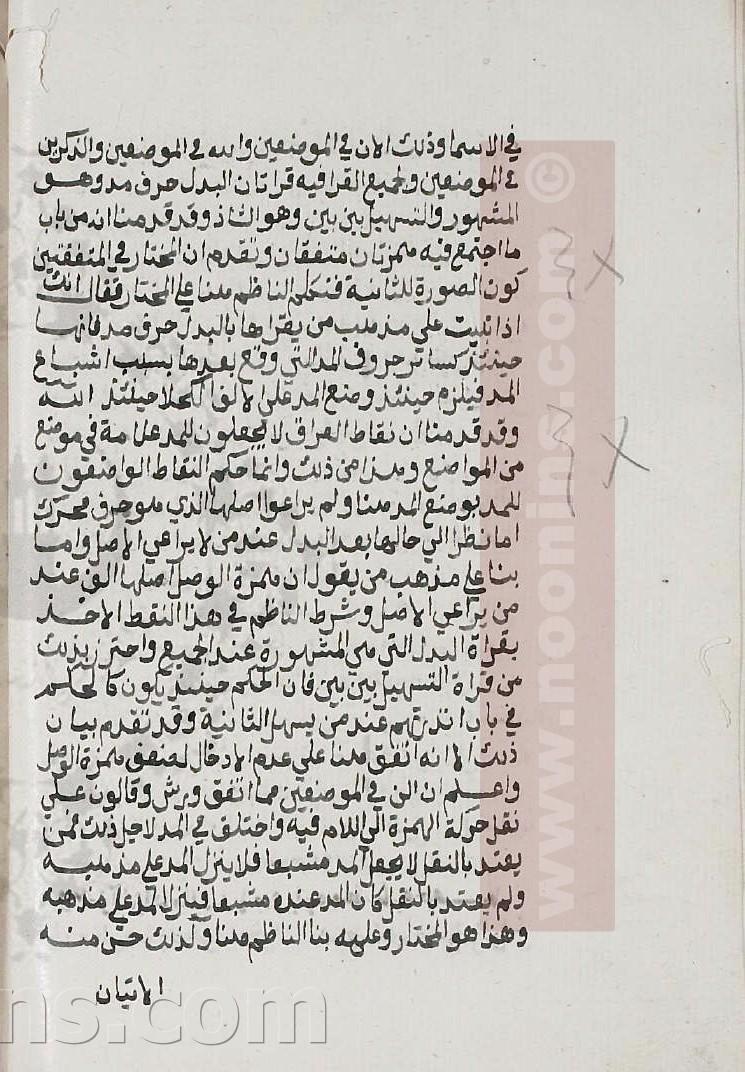 في الاسما وذلك الان في الموضعين والله في الموضعين والذكرين
في الموضعين ولجميع القرا فيه قراتان البدل حرف مد وهو
المشهور والتسهيل بين بين وهو الشاذ وقد قدمنا انه من باب
ما اجتمع فيه همزتان متفقتان وتقدم ان المختار في المتفقتين
كون الصورة للثانية فتكلم الناظم هنا علي المختار فقال انك
اذا بنيت علي مذهب من يقراها بالبدل حرف مد فانها
حينئذ كسائر حروف المد التي وقع بعدها بسبب اشباع
المد فيلزم حينئذ وضع المد علي الالف الكحلا حينئذ ءآلله
وقد قدمنا ان نقاط العراق لا يجعلون للمد علامة في موضع
من المواضع وهذا من ذلك وانما حكم النقاط الواضعون
للمد بوضع المد هنا ولم يراعوا اصلها الذي هو حرف محرك
اما نظرا الي حالها بعد البدل عند من لا يراعي الاصل واما
بنا علي مذهب من يقول ان همزة الوصل اصلها الف عند
من يراعي الاصل وشرط الناظم في هذا النقط الاخذ
بقراة البدل التي هي المشهورة عند الجميع واحترز بذلك
من قراة التسهيل بين بين فان الحكم حينئذ يكون كالحكم
في باب انذرتهم عند من يسهل الثانية وقد تقدم بيان
ذلك الا انه اتفق هنا علي عدم الادخال لضعف همزة الوصل
واعلم ان الن في الموضعين مما اتفق ورش وقالون علي
نقل حركة الهمزة الي اللام فيه واختلف في المد لاجل ذلك فمن
يعتد بالنقل لا يجعل المد مشبعا فلا ينزل المد علي مذهبه
ولم يعتد بالنقل كان المد عنده مشبعا فينزل المد علي مذهبه
وهذا هو المختار وعليه بنا الناظم هنا ولذلك حسن منه
الاتيان
www.noonins.com ©
ns.com